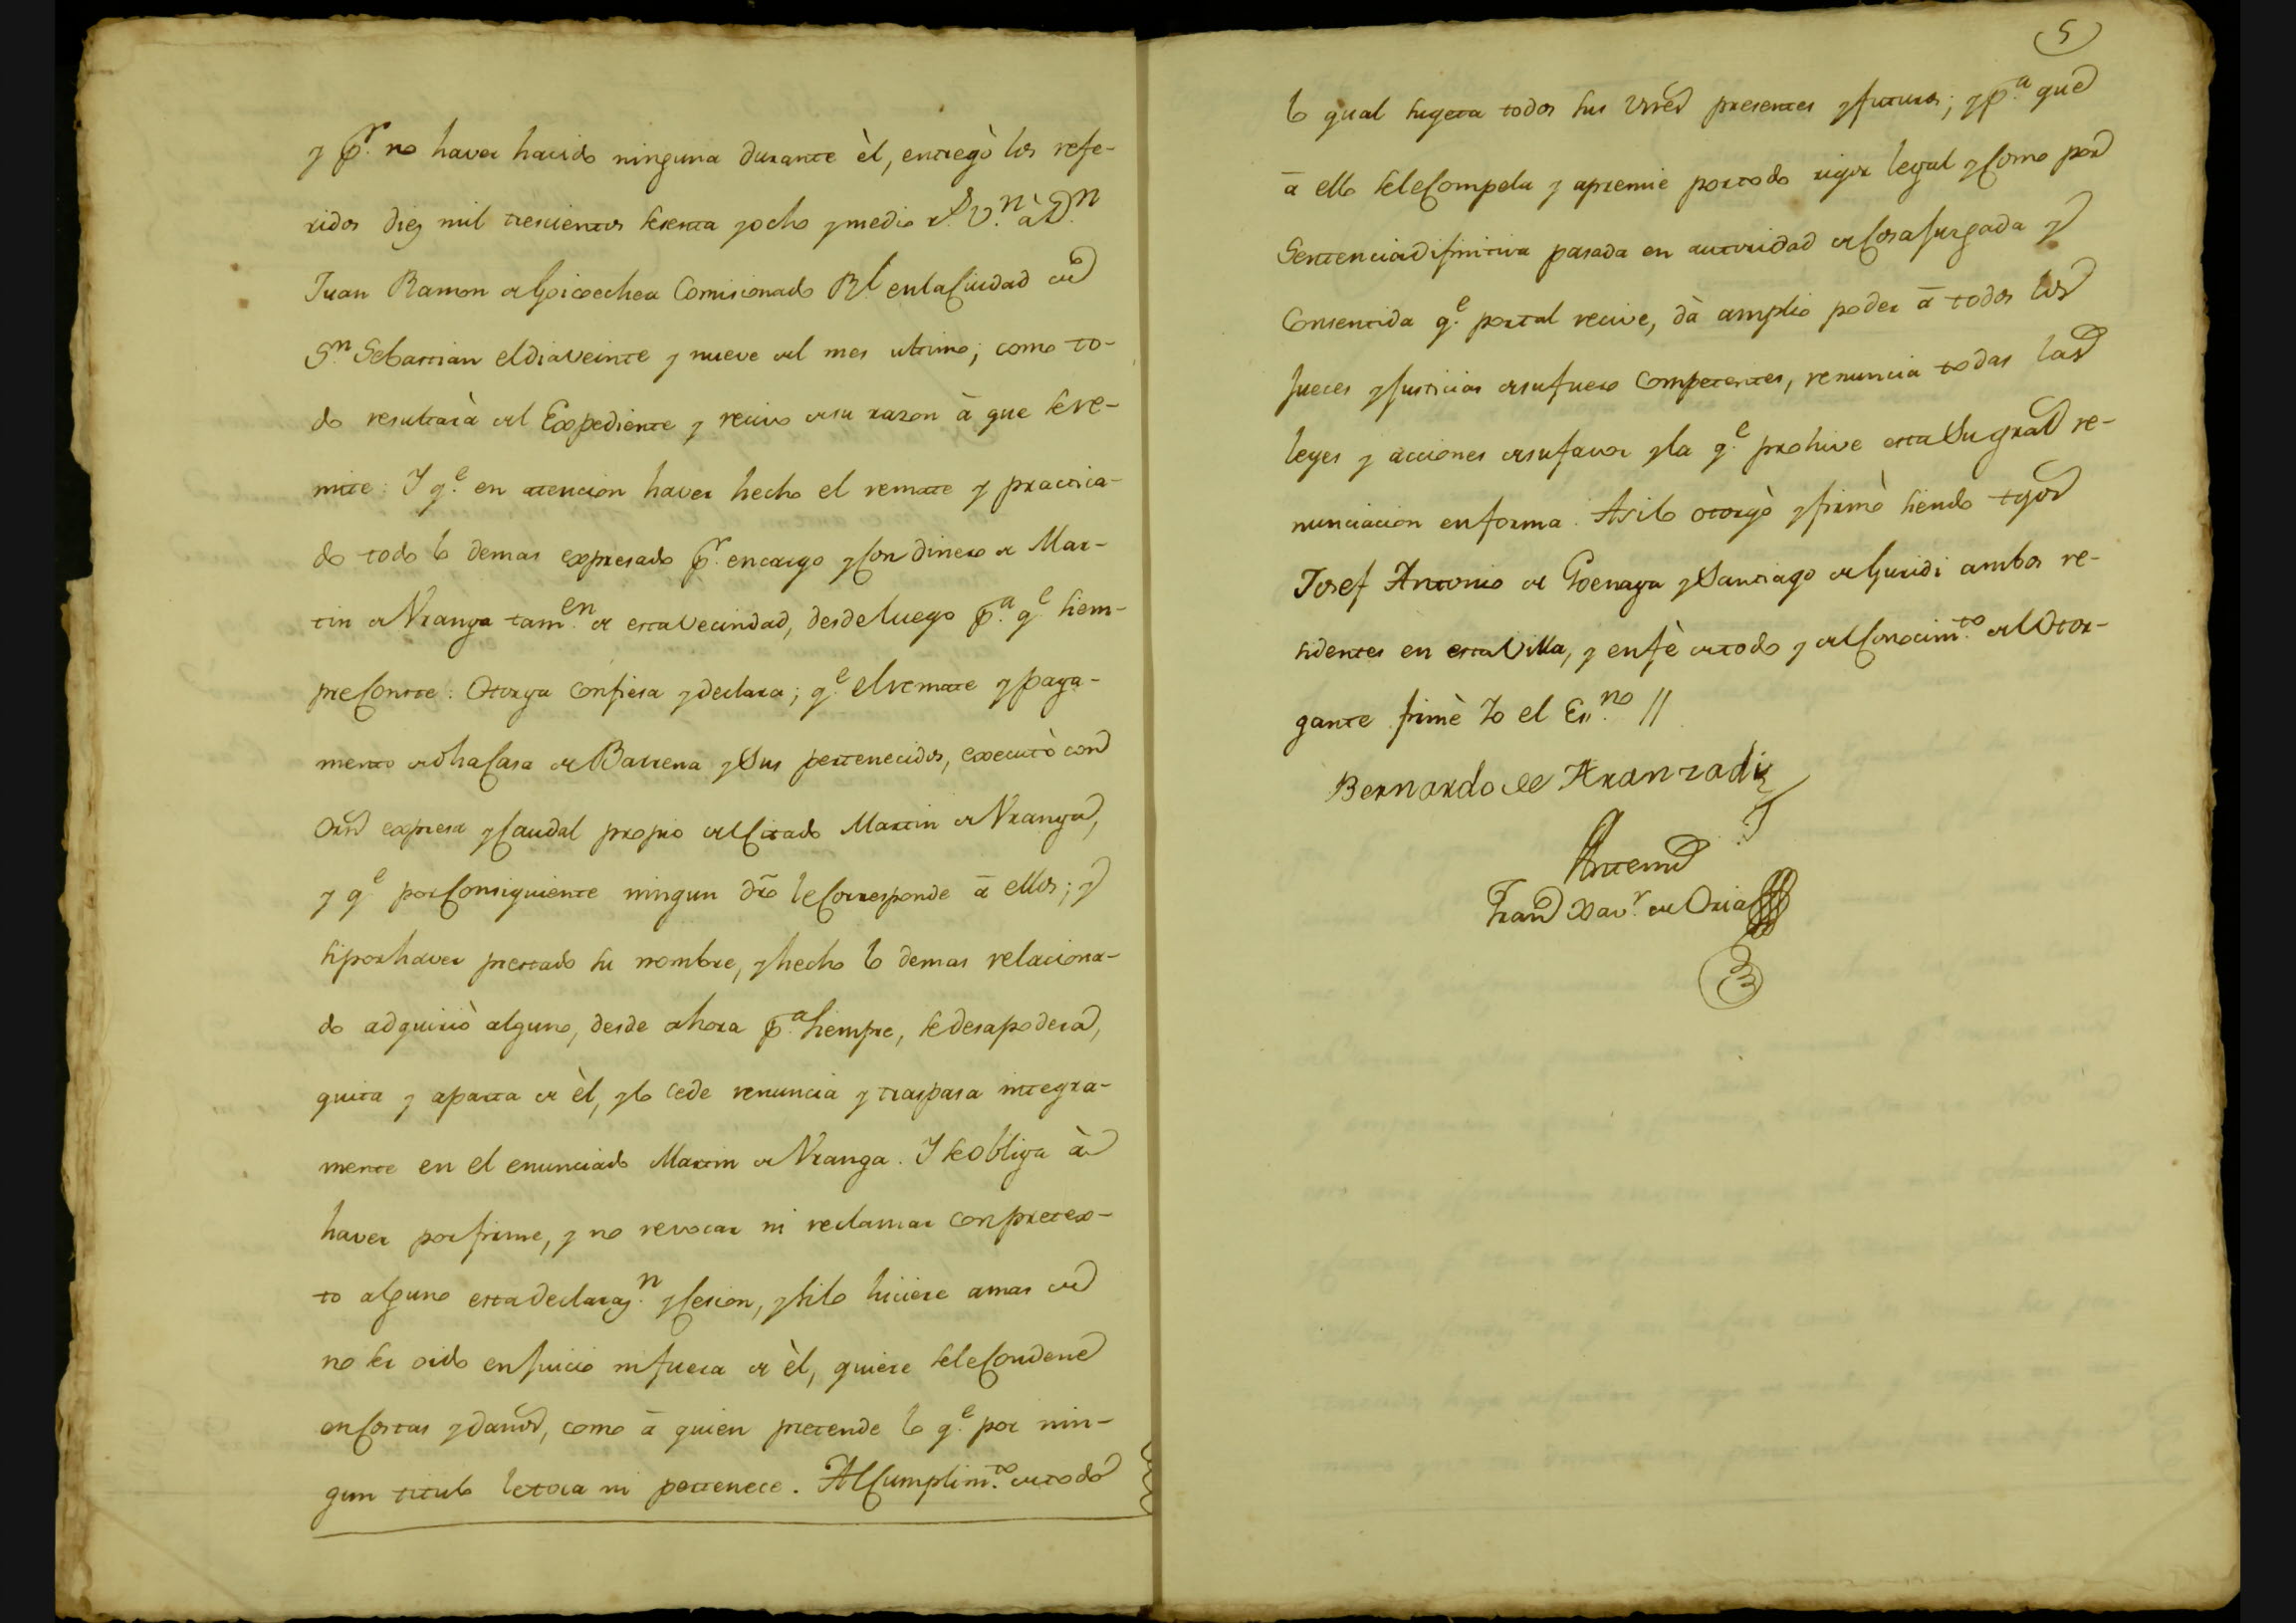 y pr. no haver havido ninguna durante èl, entregò los refe-
ridos diez mil trescientos sesenta y ocho y medio rs. v.n à D.n
Juan Ramon de Goicoechea Comisionado Rl. en la Ciudad de
S.n Sebastian el dia veinte y nueve del mes ultimo; como to-
do resultarà del Expediente y recivo de su razon à que se re-
mite: Y q.e en atencion haver hecho el remate y practica-
do todo lo demas expresado pr. encargo y con dinero de Mar-
tin de Uranga tam.en de esta vecindad, desde luego p.a q.e siem-
pre conste: Otorga confiesa y declara; q.e el remate y paga-
mento de dha Casa de Barrena y sus pertenecidos, executò con
orn expresa y caudal propio del citado Martin de Uranga,
y q.e por consiguiente ningun dro le corresponde à ellos; y
si por haver prestado su nombre, y hecho lo demas relaciona-
do adquiriò alguno, desde ahora p.a siempre, se desapodera,
quita y aparta de èl, y lo cede renuncia y traspasa integra-
mente en el enunciado Martin de Uranga. Y se obliga à
haver por firme, y no revocar ni reclamar con pretex-
to alguno esta declaraz.n y cesion, y si lo hiciere amas de
no ser oido en juicio ni fuera de èl, quiere se le condene
en costas y daños, como à quien pretende lo q.e por nin-
gun titulo le toca ni pertenece. Al cumplim.to de todo
5
lo qual sugeta todos sus vnes presentes y futuros; y p.a que
à ello se le compela y apremie por todo rigor legal y como por
Sentencia difinitiva pasada en autoridad de cosa juzgada y
consentida q.e por tal recive, dà amplio poder à todos los
Jueces y Justicias de su fuero competentes, renuncia todas las
leyes y acciones de su favor y la q.e prohive esta su gral re-
nunciacion en forma. Asi lo otorgò y firmò siendo tgos
Josef Antonio de Goenaga y Santiago de Guridi ambos re-
sidentes en esta Villa, y en fè de todo y del conocim.to del Otor-
gante firmè Yo el Es.no //
Bernardo de Aranzadi
Antemi
Fran Xav.r de Oria